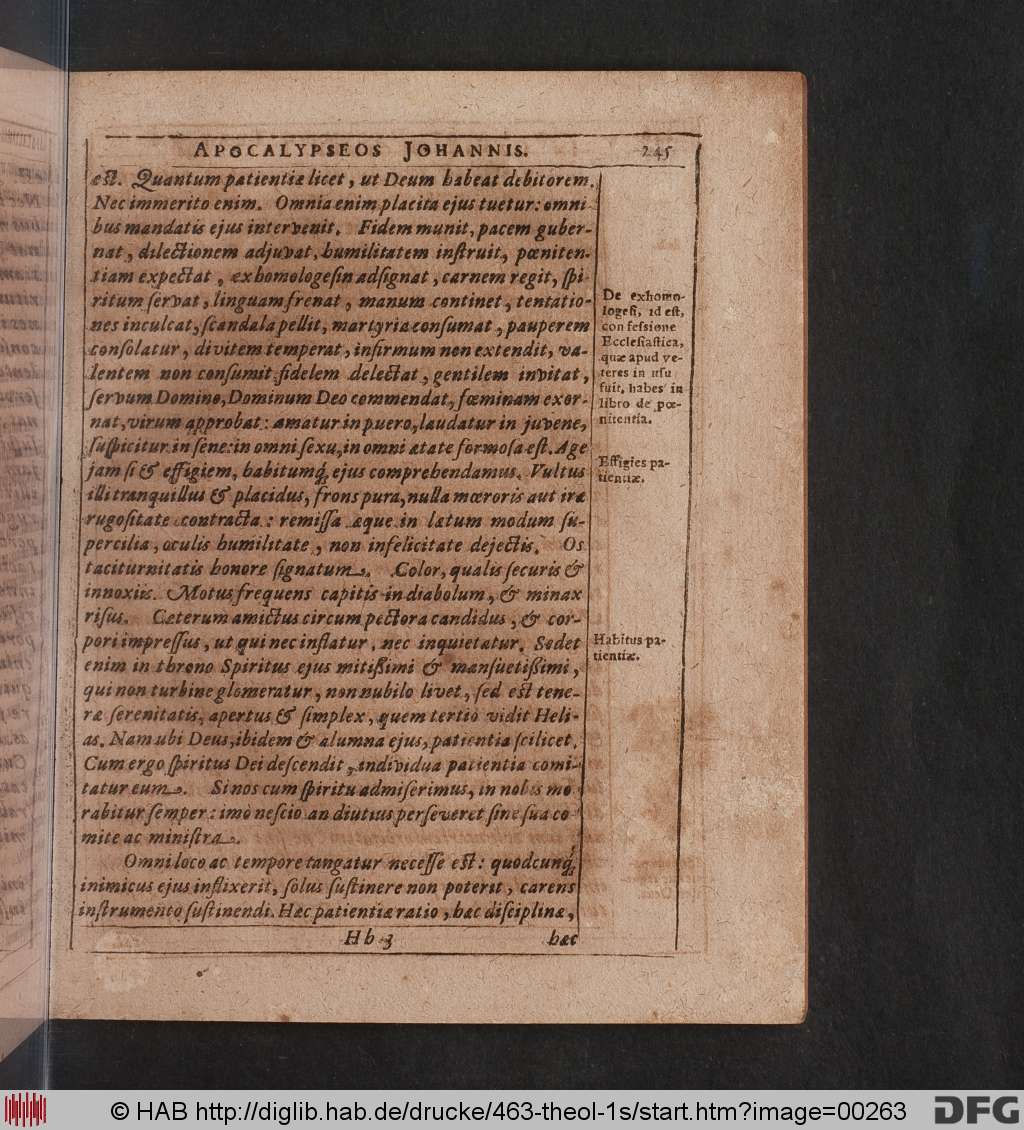 APOCALYPSEOS JOHANNIS. 245
est. Quantum patientiæ licet, ut Deum habeat debitorem.
Nec immerito enim. Omnia enim placita ejus tuetur: omni
bus mandatis ejus intervenit. Fidem munit, pacem guber-
nat, dilectionem adjuvat, humilitatem instruit, pœniten-
tiam expectat, exhomologesin adsignat, carnem regit, spi-
ritum servat, linguam frenat, manum continet, tentatio-
nes inculcat, scandala pellit, martyria consumat, pauperem
consolatur, divitem temperat, infirmum non extendit, va-
lentem non consumit, fidelem delectat, gentilem invitat,
servum Domino, Dominum Deo commendat, fœminam exor-
nat, virum approbat: amatur in puero, laudatur in juvene,
suspicitur in sene: in omni sexu, in omni ætate formosa est. Age
jam si & effigiem, habitumq́; ejus comprehendamus. Vultus
illi tranquillus & placidus, frons pura, nulla mœroris aut iræ
rugositate contracta: remissa æque in lætum modum su-
percilia, oculis humilitate, non infelicitate dejectis. Os
taciturnitatis honore signatum. Color, qualis securis &
innoxiis. Motus frequens capitis in diabolum, & minax
risus. Cæterum amictus circum pectora candidus, & cor-
pori impressus, ut qui nec inflatur, nec inquietatur. Sedet
enim in throno Spiritus ejus mitißimi & mansuetißimi,
qui non turbine glomeratur, non nubilo livet, sed est tene-
ræ serenitatis, apertus & simplex, quem tertiò vidit Heli-
as. Nam ubi Deus, ibidem & alumna ejus, patientia scilicet.
Cum ergo spiritus Dei descendit, individua patientia comi-
tatur eum. Si nos cum spiritu admiserimus, in nobis mo
rabitur semper: imò nescio an diutius perseveret sine sua co
mite ac ministra.
Omni loco ac tempore tangatur necesse est: quodcunq́;
inimicus ejus inflixerit, solus sustinere non poterit, carens
instrumento sustinendi. Hæc patientiæ ratio, hæc disciplina,
Hh 3 hæc
De exhomo-
logesi, id est,
confessione
Ecclesiastica,
quæ apud ve-
teres in usu
fuit, habes in
libro de pœ-
nitentia.
Effigies pa-
tientiæ.
Habitus pa-
tientiæ.
© HAB http://diglib.hab.de/drucke/463-theol-1s/start.htm?image=00263 DFG